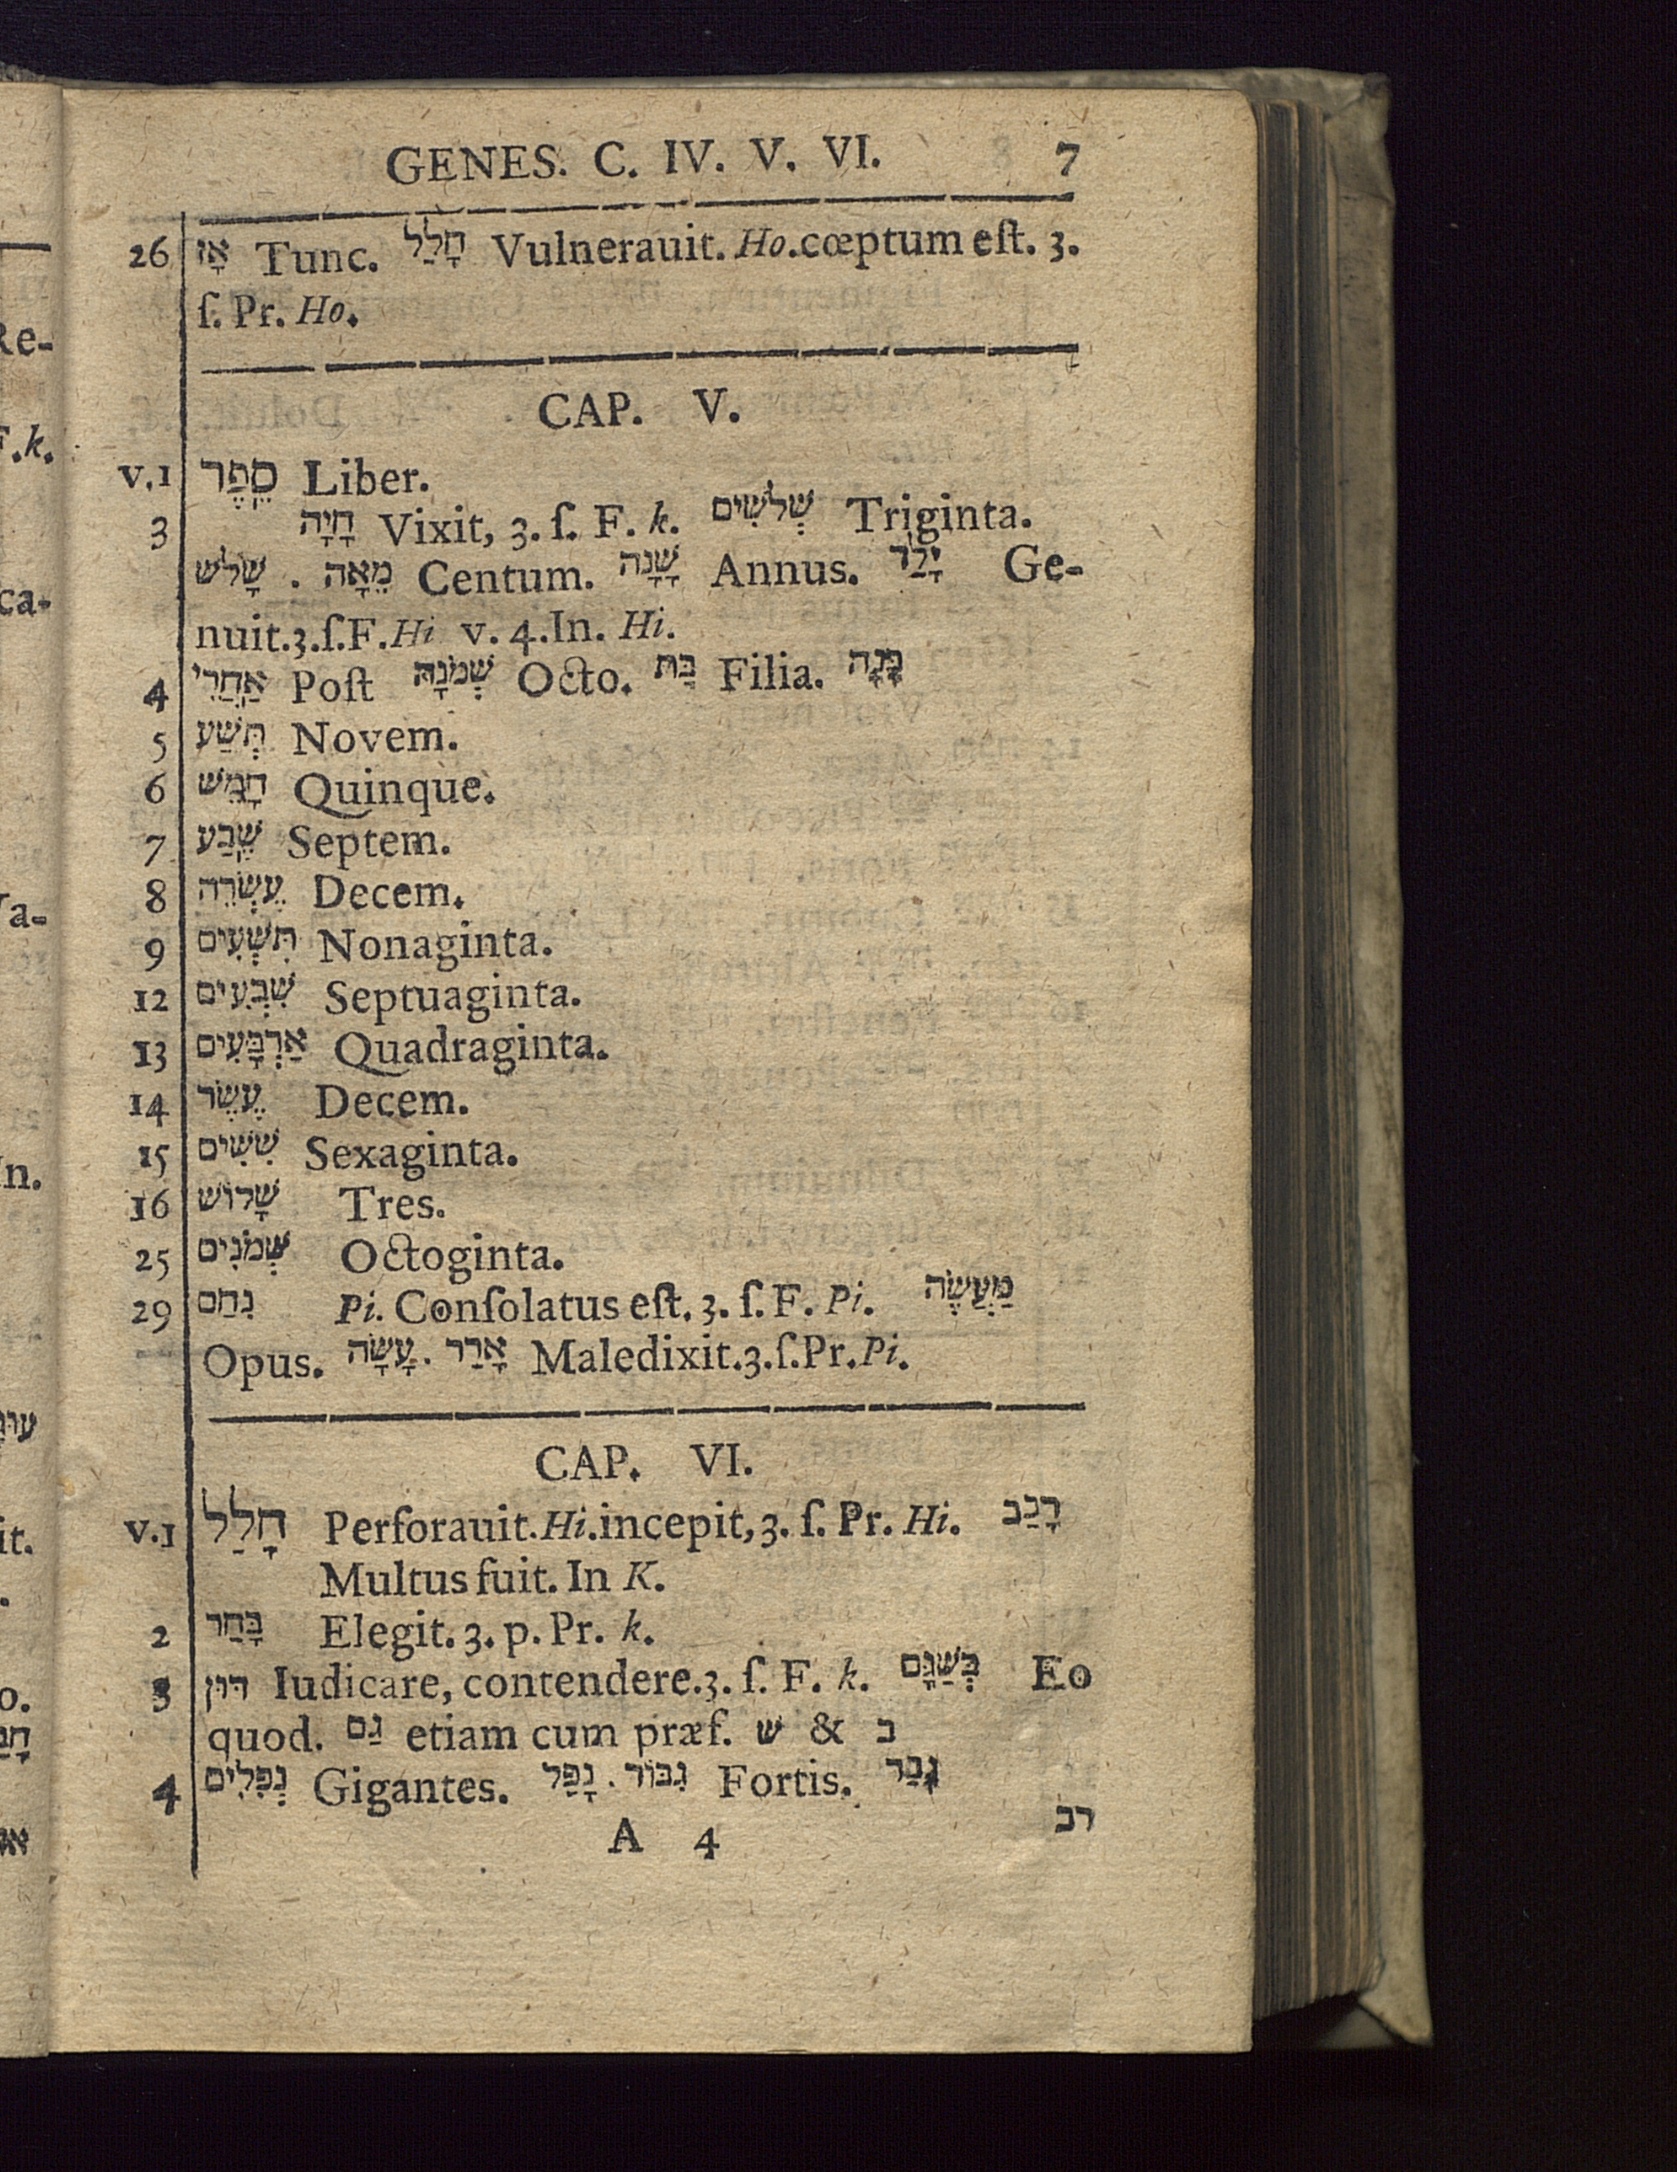 GENES. C. IV. V. VI. 7
26 אָז Tunc. חָלַל Vulnerauit. Ho.cœptum eſt. 3.
ſ. Pr. Ho.
CAP. V.
v.1 סֵפֶר Liber.
3 חָיָה Vixit, 3. ſ. F. k. שְׁלֹשִׁים Triginta.
שָׁלֹשׁ . מֵאָה Centum. שָׁנָה Annus. יָלַד Ge-
nuit.3.ſ.F.Hi v. 4.In. Hi.
4 אַחֲרֵי Poſt שְׁמֹנָה Octo. בַּת Filia. בָּנָה
5 תְּשַׁע Novem.
6 חָמֵשׁ Quinque.
7 שֶׁבַע Septem.
8 עֶשְׂרֵה Decem.
9 תִּשְׁעִים Nonaginta.
12 שִׁבְעִים Septuaginta.
13 אַרְבָּעִים Quadraginta.
14 עֶשֶׂר Decem.
15 שִׁשִּׁים Sexaginta.
16 שָׁלוֹשׁ Tres.
25 שְׁמֹנִים Octoginta.
29 נִחַם Pi. Conſolatus eſt. 3. ſ. F. Pi. מַעֲשֶׂה
Opus. עָשָׂה . אָרַר Maledixit.3.ſ.Pr.Pi.
CAP. VI.
v.1 חָלַל Perforauit.Hi.incepit,3. ſ. Pr. Hi. רָבַב
Multus fuit. In K.
2 בָּחַר Elegit. 3. p. Pr. k.
3 דוּן Iudicare, contendere.3. ſ. F. k. בְּשַׁגָּם Eo
quod. גַּם etiam cum præf. שׁ & ב
4 נְפִלִים Gigantes. נָפַל . גִּבּוֹר Fortis. גָּבַר
A 4 רב